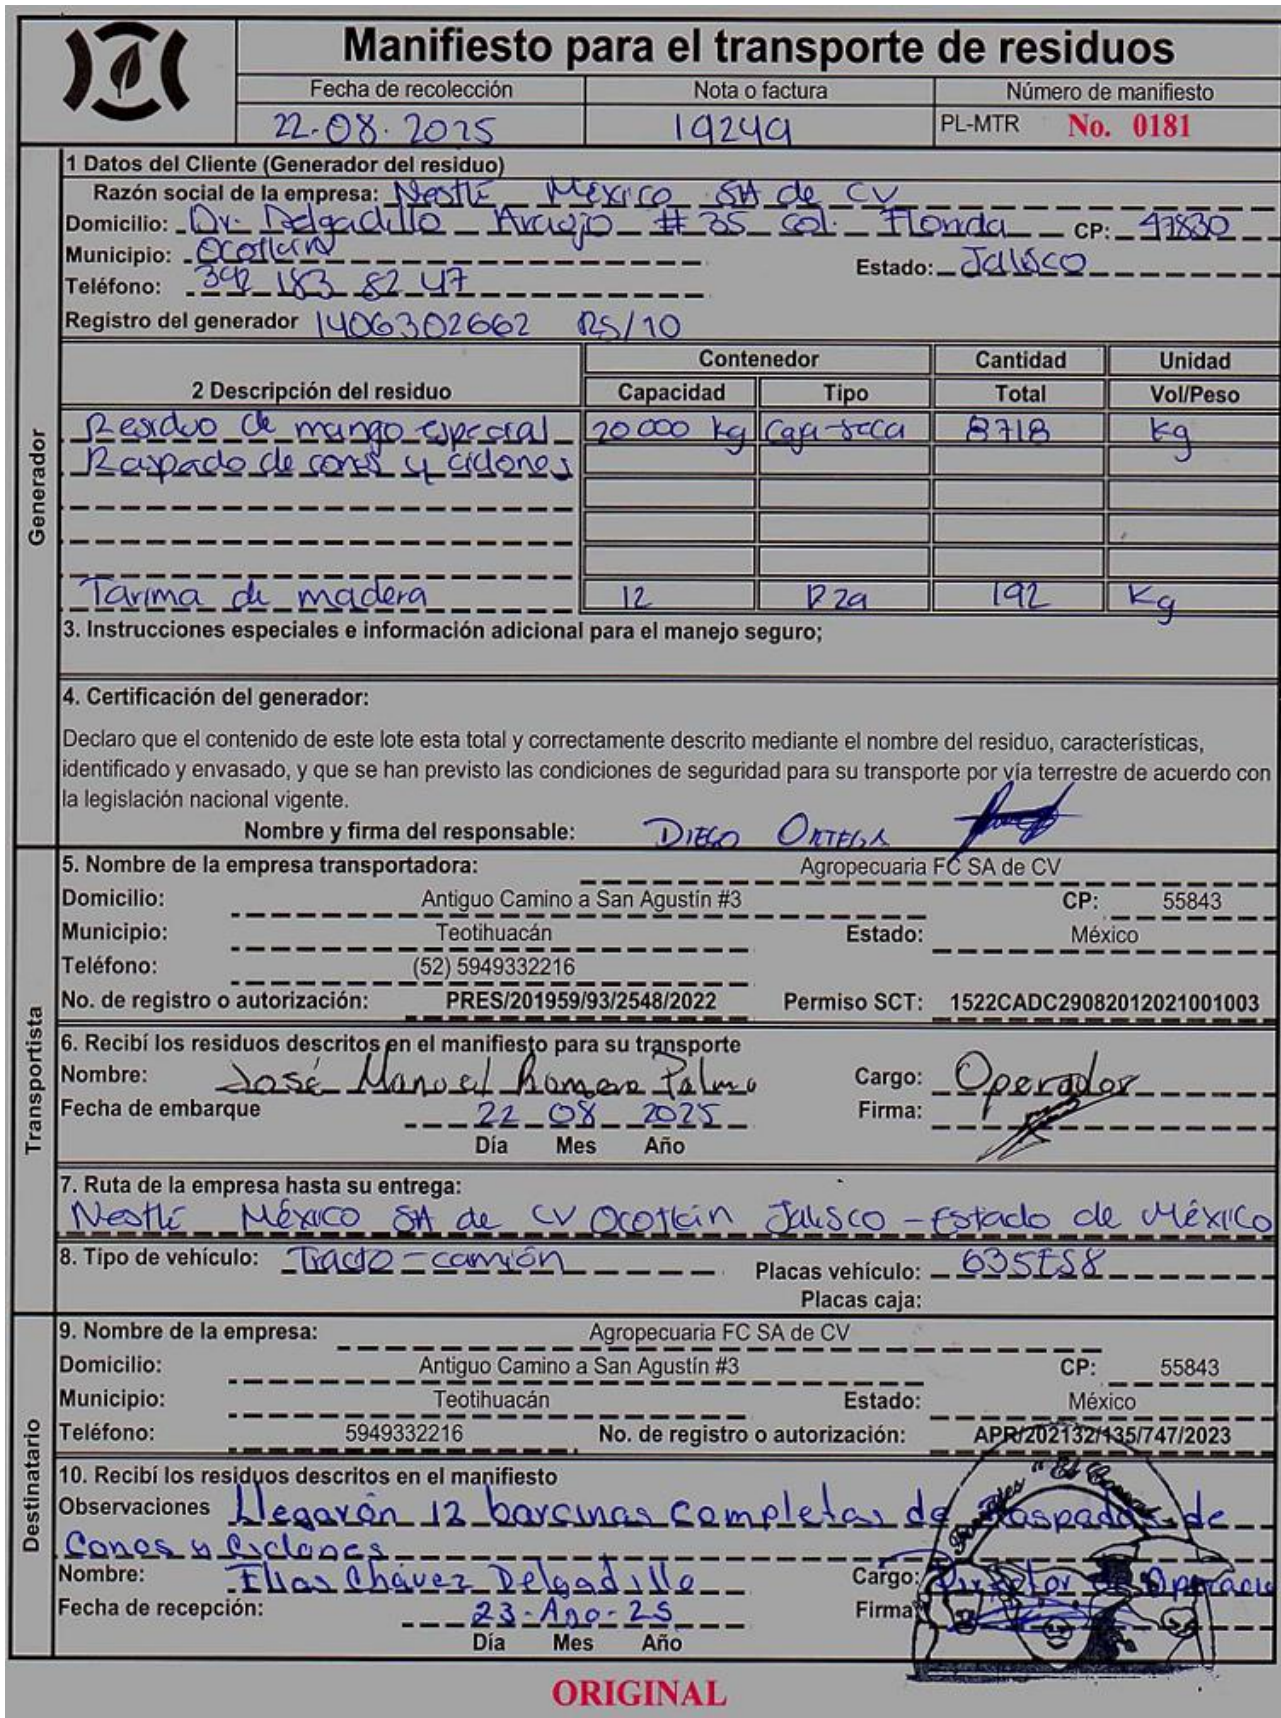 Manifiesto para el transporte de residuos
Fecha de recolección Nota o factura Número de manifiesto
22.08.2025 19249 PL-MTR No. 0181
Generador
1 Datos del Cliente (Generador del residuo)
Razón social de la empresa: Nestlé México SA de CV
Domicilio: Dr. Delgadillo Araujo #35 col. Florida CP: 47830
Municipio: Ocotlán Estado: Jalisco
Teléfono: 392 183 82 47
Registro del generador 1406302662 RS/10
2 Descripción del residuo Contenedor Cantidad Unidad
Capacidad Tipo Total Vol/Peso
Residuo de mango especial 20 000 kg Caja seca 8718 kg
Raspado de conos y ciclones
Tarima de madera 12 Pza 192 Kg
3. Instrucciones especiales e información adicional para el manejo seguro;
4. Certificación del generador:
Declaro que el contenido de este lote esta total y correctamente descrito mediante el nombre del residuo, características,
identificado y envasado, y que se han previsto las condiciones de seguridad para su transporte por vía terrestre de acuerdo con
la legislación nacional vigente.
Nombre y firma del responsable: DIEGO ORTEGA
Transportista
5. Nombre de la empresa transportadora: Agropecuaria FC SA de CV
Domicilio: Antiguo Camino a San Agustín #3 CP: 55843
Municipio: Teotihuacán Estado: México
Teléfono: (52) 5949332216
No. de registro o autorización: PRES/201959/93/2548/2022 Permiso SCT: 1522CADC29082012021001003
6. Recibí los residuos descritos en el manifiesto para su transporte
Nombre: José Manuel Romero Palma Cargo: Operador
Fecha de embarque 22 08 2025 Firma:
Día Mes Año
7. Ruta de la empresa hasta su entrega:
Nestlé México SA de CV Ocotlán Jalisco - Estado de México
8. Tipo de vehículo: Tracto-camión Placas vehículo: 635ES8
Placas caja:
Destinatario
9. Nombre de la empresa: Agropecuaria FC SA de CV
Domicilio: Antiguo Camino a San Agustín #3 CP: 55843
Municipio: Teotihuacán Estado: México
Teléfono: 5949332216 No. de registro o autorización: APR/202132/135/747/2023
10. Recibí los residuos descritos en el manifiesto
Observaciones Llegarón 12 barcinas completas de Raspado de
Conos y Ciclones
Nombre: Elias Chávez Delgadillo Cargo: Director de Operacio
Fecha de recepción: 23-Ago-25 Firma
Día Mes Año
ORIGINAL